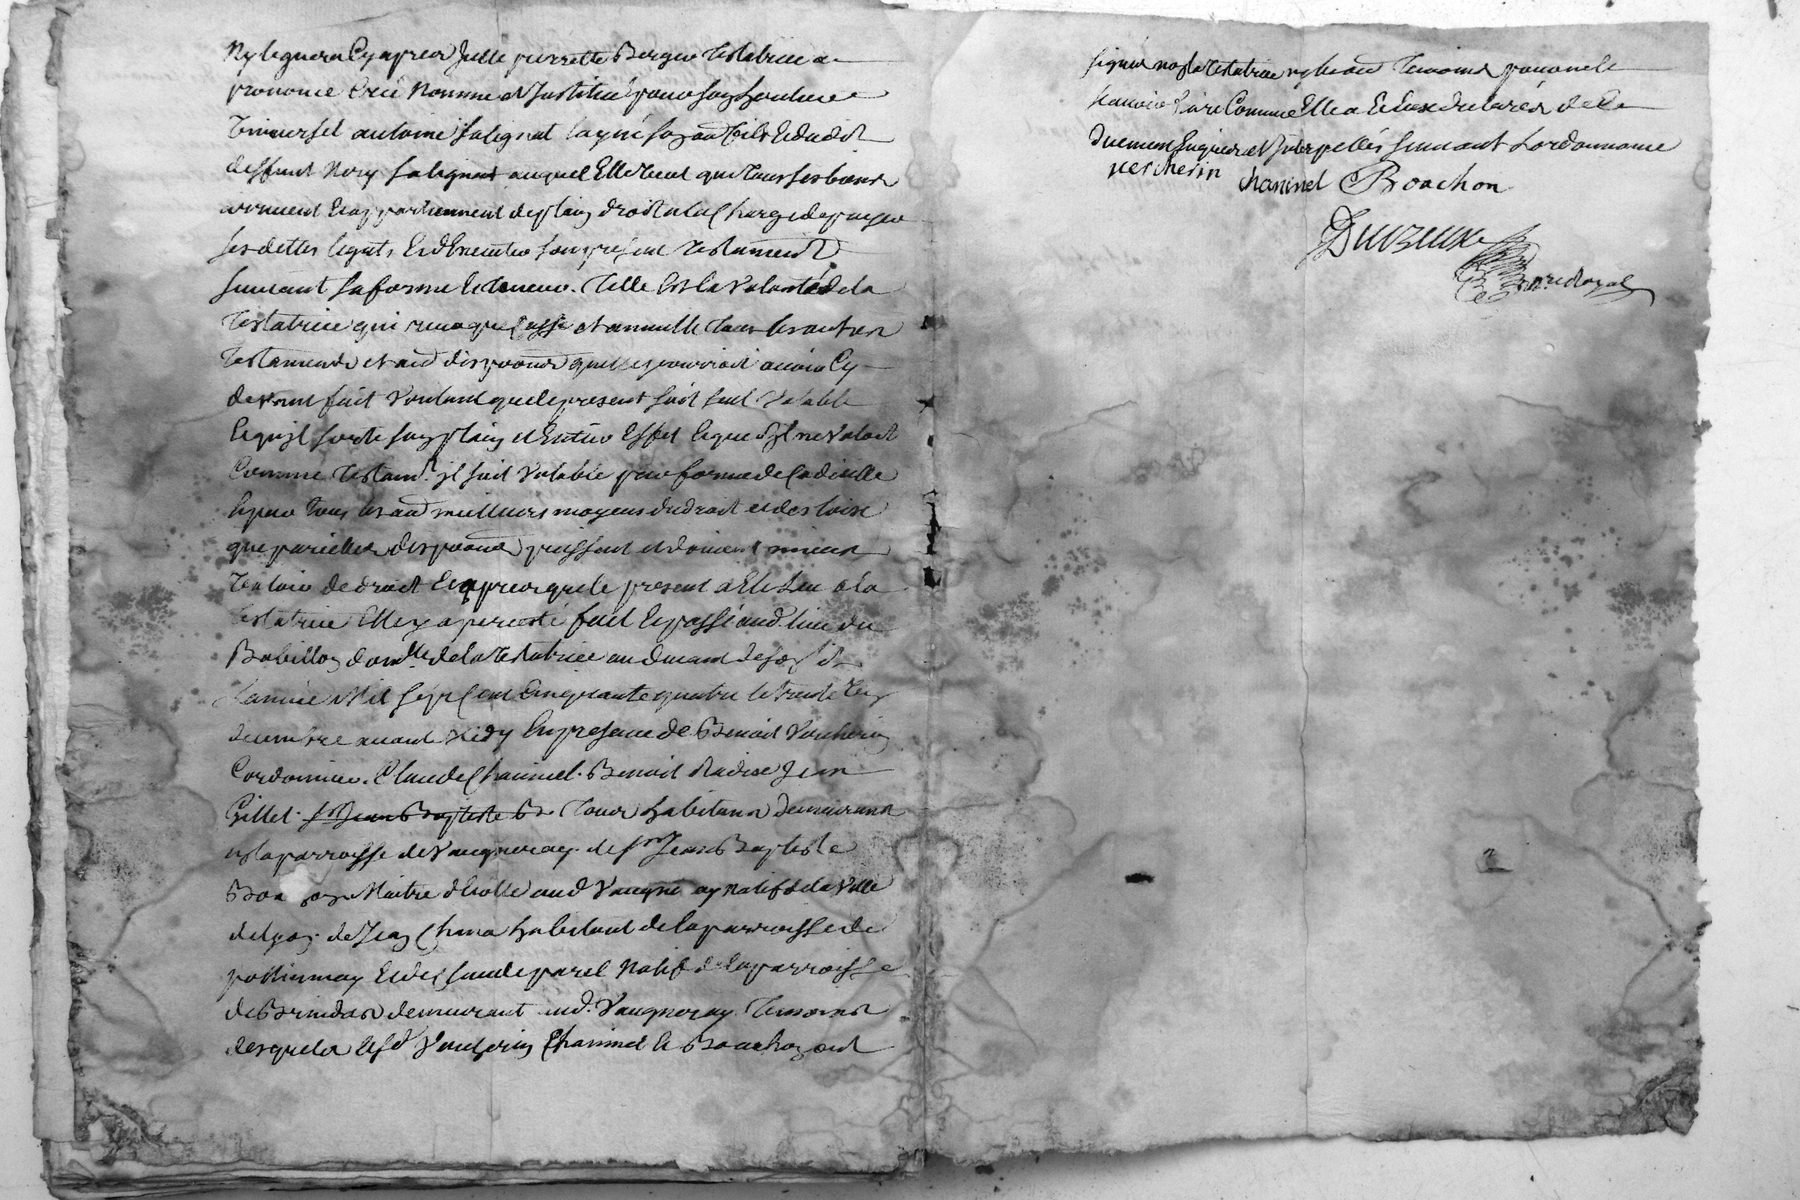 Ny leguera Cy apres Jcelle pierrette Berger testatrice a
prononcé Créé Nommé et Institué pour son heritier
Universel antoine Salignat layné son fils Et dudit
deffunt Nory Salignat auquel Elle veut que tous ses biens
arrivent Et appartiennent de plain droit a la Charge de payer
ses dettes legats Et d'Executer son present testament
suivant sa forme Et teneur. Telle Est la Volonté de la
testatrice qui revoque Casse et annulle tous les autres
testaments et aud dispositions quelle pourroit avoir Cy
devant fait Voulant que le present soit seul Valable
Et qu'il sorte son plain et Entier Effet Et que s'il ne Valoit
Comme testamt. il soit Valable par forme de Codicille
Et par tous les aud meilleurs moyens du droit et des loix
que pareilles dispositions puissent et doivent mieux
Valoir de droit Et apres que le present a Eté Leu a la
testatrice Elle y a persisté fait Et passé aud. lieu du
Babillon domlle de la testatrice au devant de
Lannée Mil Sept Cent Cinquante quatre le trente
decembre avant Midy En presence de Benoit Vercherin
Cordonnier. Claude Chaninel. Benoit Jean
Gillet. sr Jean Baptiste Bo tous habitans demeurans
en la parroisse de Vaugneray. de sr Jean Baptiste
Boachon Maitre d'Ecolle aud Vaugneray natif de la Ville
de Lyon. de Jean habitant de la parroisse de
pollionnay Et de Claude natif de la parroisse
de Brindas demeurant aud. Vaugneray. Temoins
desquels Lesd Vercherin Chaninel Et Boachon ont
signés non la testatrice ny les aud Temoins pour ne le
scavoir faire Comme Elle a Et Eux declarés de Ce
Duement Enquis et Interpellés suivant Lordonnance
vercherin chaninel Boachon
re Royal